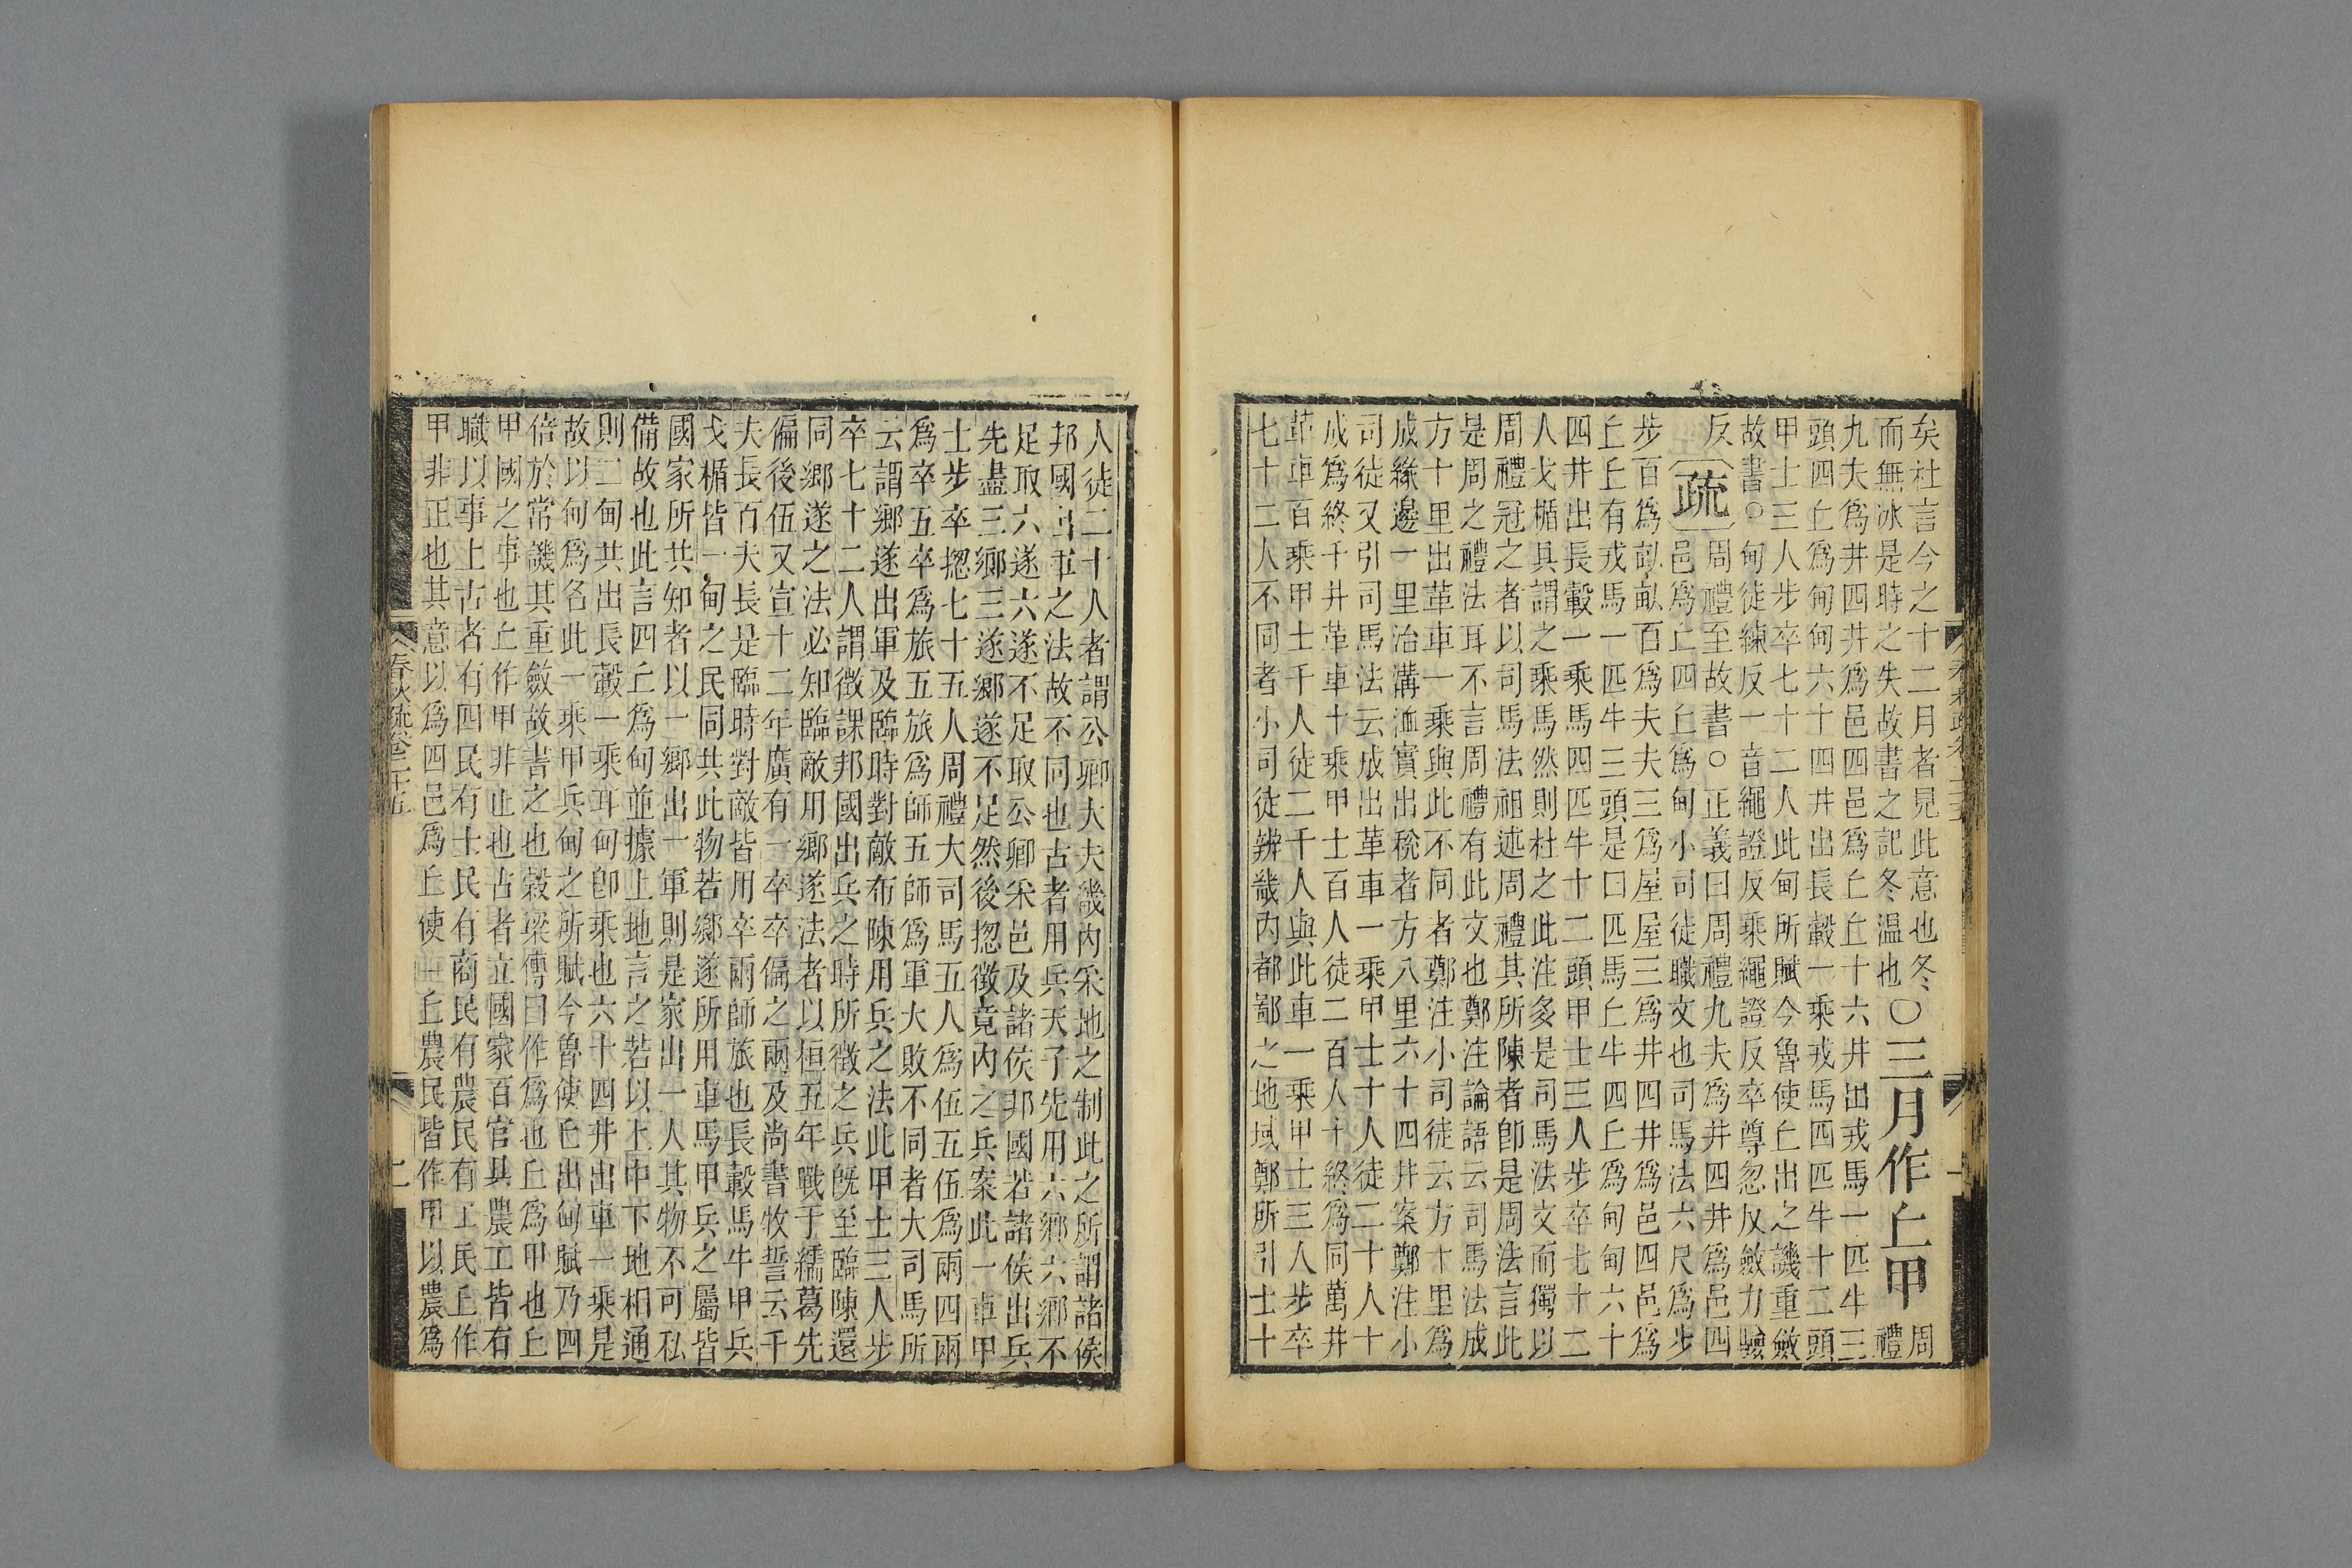 矣杜言今之十二月者見此意也冬
而無冰是時之失故書之記冬温也
〇三月作丘甲
周
禮
九夫爲井四井爲邑四邑爲丘丘十六井出戎馬一匹牛三
頭四丘爲甸甸六十四井出長轂一乘戎馬四匹牛十二頭
甲士三人步卒七十二人此甸所賦今魯使丘出之譏重斂
故書○甸徒練反一音繩證反乘繩證反卒尊忽反斂力驗
反
疏
周禮至故書○正義曰周禮九夫爲井四井爲邑四
邑爲丘四丘爲甸小司徒職文也司馬法六尺爲步
步百爲畝畝百爲夫夫三爲屋屋三爲井四井爲邑四邑爲
丘丘有戎馬一匹牛三頭是曰匹馬丘牛四丘爲甸甸六十
四井出長轂一乘馬四匹牛十二頭甲士三人步卒七十二
人戈楯具謂之乘馬然則杜之此注多是司馬法文而獨以
周禮冠之者以司馬法祖述周禮其所陳者卽是周法言此
是周之禮法耳不言周禮有此文也鄭注論語云司馬法成
方十里出革車一乘與此不同者鄭注小司徒云方十里爲
成緣邊一里治溝洫實出稅者方八里六十四井案鄭注小
司徒又引司馬法云成出革車一乘甲士十人徒二十人十
成爲終千井革車十乘甲士百人徒二百人十終爲同萬井
革車百乘甲士千人徒二千人與此車一乘甲士三人步卒
七十二人不同者小司徒辨畿內都鄙之地域鄭所引士十
人徒二十人者謂公卿大夫畿內采地之制此之所謂諸侯
邦國出軍之法故不同也古者用兵天子先用六鄉六鄉不
足取六遂六遂不足取公卿采邑及諸侯邦國若諸侯出兵
先盡三鄉三遂鄉遂不足然後揔徵竟內之兵案此一車甲
士步卒揔七十五人周禮大司馬五人爲伍五伍爲兩四兩
爲卒五卒爲旅五旅爲師五師爲軍大敗不同者大司馬所
云謂鄉遂出軍及臨時對敵布陳用兵之法此甲士三人步
卒七十二人謂徵課邦國出兵之時所徵之兵旣至臨陳還
同鄉遂之法必知臨敵用鄉遂法者以桓五年戰于繻葛先
偏後伍又宣十二年廣有一卒卒偏之兩及尚書牧誓云千
夫長百夫長是臨時對敵皆用卒兩師旅也長轂馬牛甲兵
戈楯皆一甸之民同共此物若鄉遂所用車馬甲兵之屬皆
國家所共知者以一鄉出一軍則是家出一人其物不可私
備故也此言四丘爲甸並據上地言之若以上中下地相通
則二甸共出長轂一乘耳甸卽乘也六十四井出車一乘是
故以甸爲名此一乘甲兵甸之所賦今魯使丘出甸賦乃四
倍於常譏其重斂故書之也穀梁傳曰作爲也丘爲甲也丘
甲國之事也丘作甲非正也古者立國家百官具農工皆有
職以事上古者有四民有士民有商民有農民有工民丘作
甲非正也其意以爲四邑爲丘使一丘農民皆作甲以農爲
春秋疏卷二十五
二